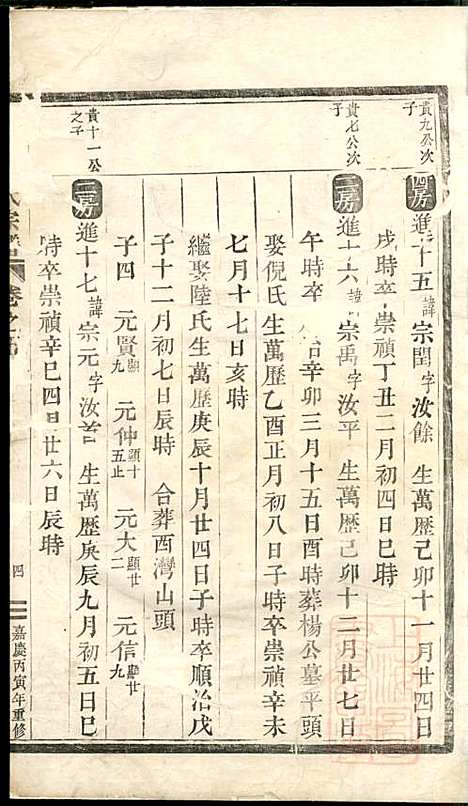 貴九公次子
四房進十五諱宗閏字汝餘 生萬歷己卯十一月廿四日
戌時卒崇禎丁丑二月初四日巳時
貴七公次子
三房進十六諱宗禹字汝平 生萬歷己卯十二月廿七日
午時卒 治辛卯三月十五日酉時葬楊公墓平頭
娶倪氏生萬歷乙酉正月初八日子時卒崇禎辛未
七月十七日亥時
繼娶陸氏生萬歷庚辰十月廿四日子時卒順治戊
子十二月初七日辰時 合葬酉灣山頭
子四 元賢顯九 元仲顯十五止 元大顯廿二 元信顯廿九
貴十一公之子
二房進十七諱宗元字汝首 生萬歷庚辰九月初五日巳
時卒崇禎辛巳四月廿六日辰時
氏宗譜 卷之 四 嘉慶丙寅年重修